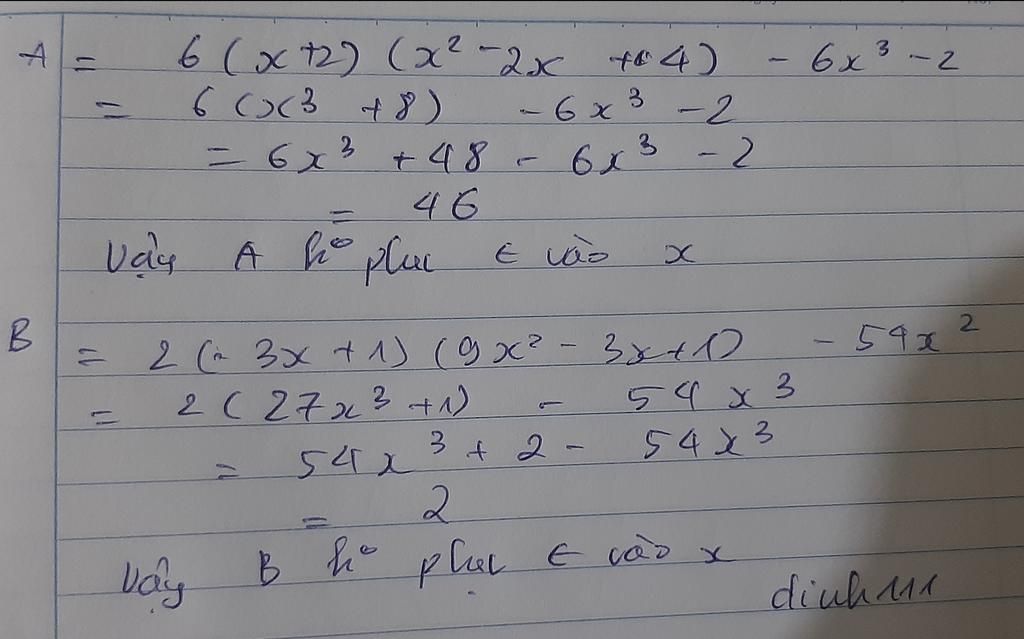 A = 6(x+2)(x² -2x + 4) - 6x³ -2
= 6(x³ +8) - 6x³ -2
= 6x³ + 48 - 6x³ - 2
= 46
Vậy A ko phụ ∈ vào x
B = 2(3x+1)(9x² - 3x+1) - 54x²
= 2(27x³+1) - 54x³
= 54x³ + 2 - 54x³
= 2
Vậy B ko phụ ∈ vào x
dinh111